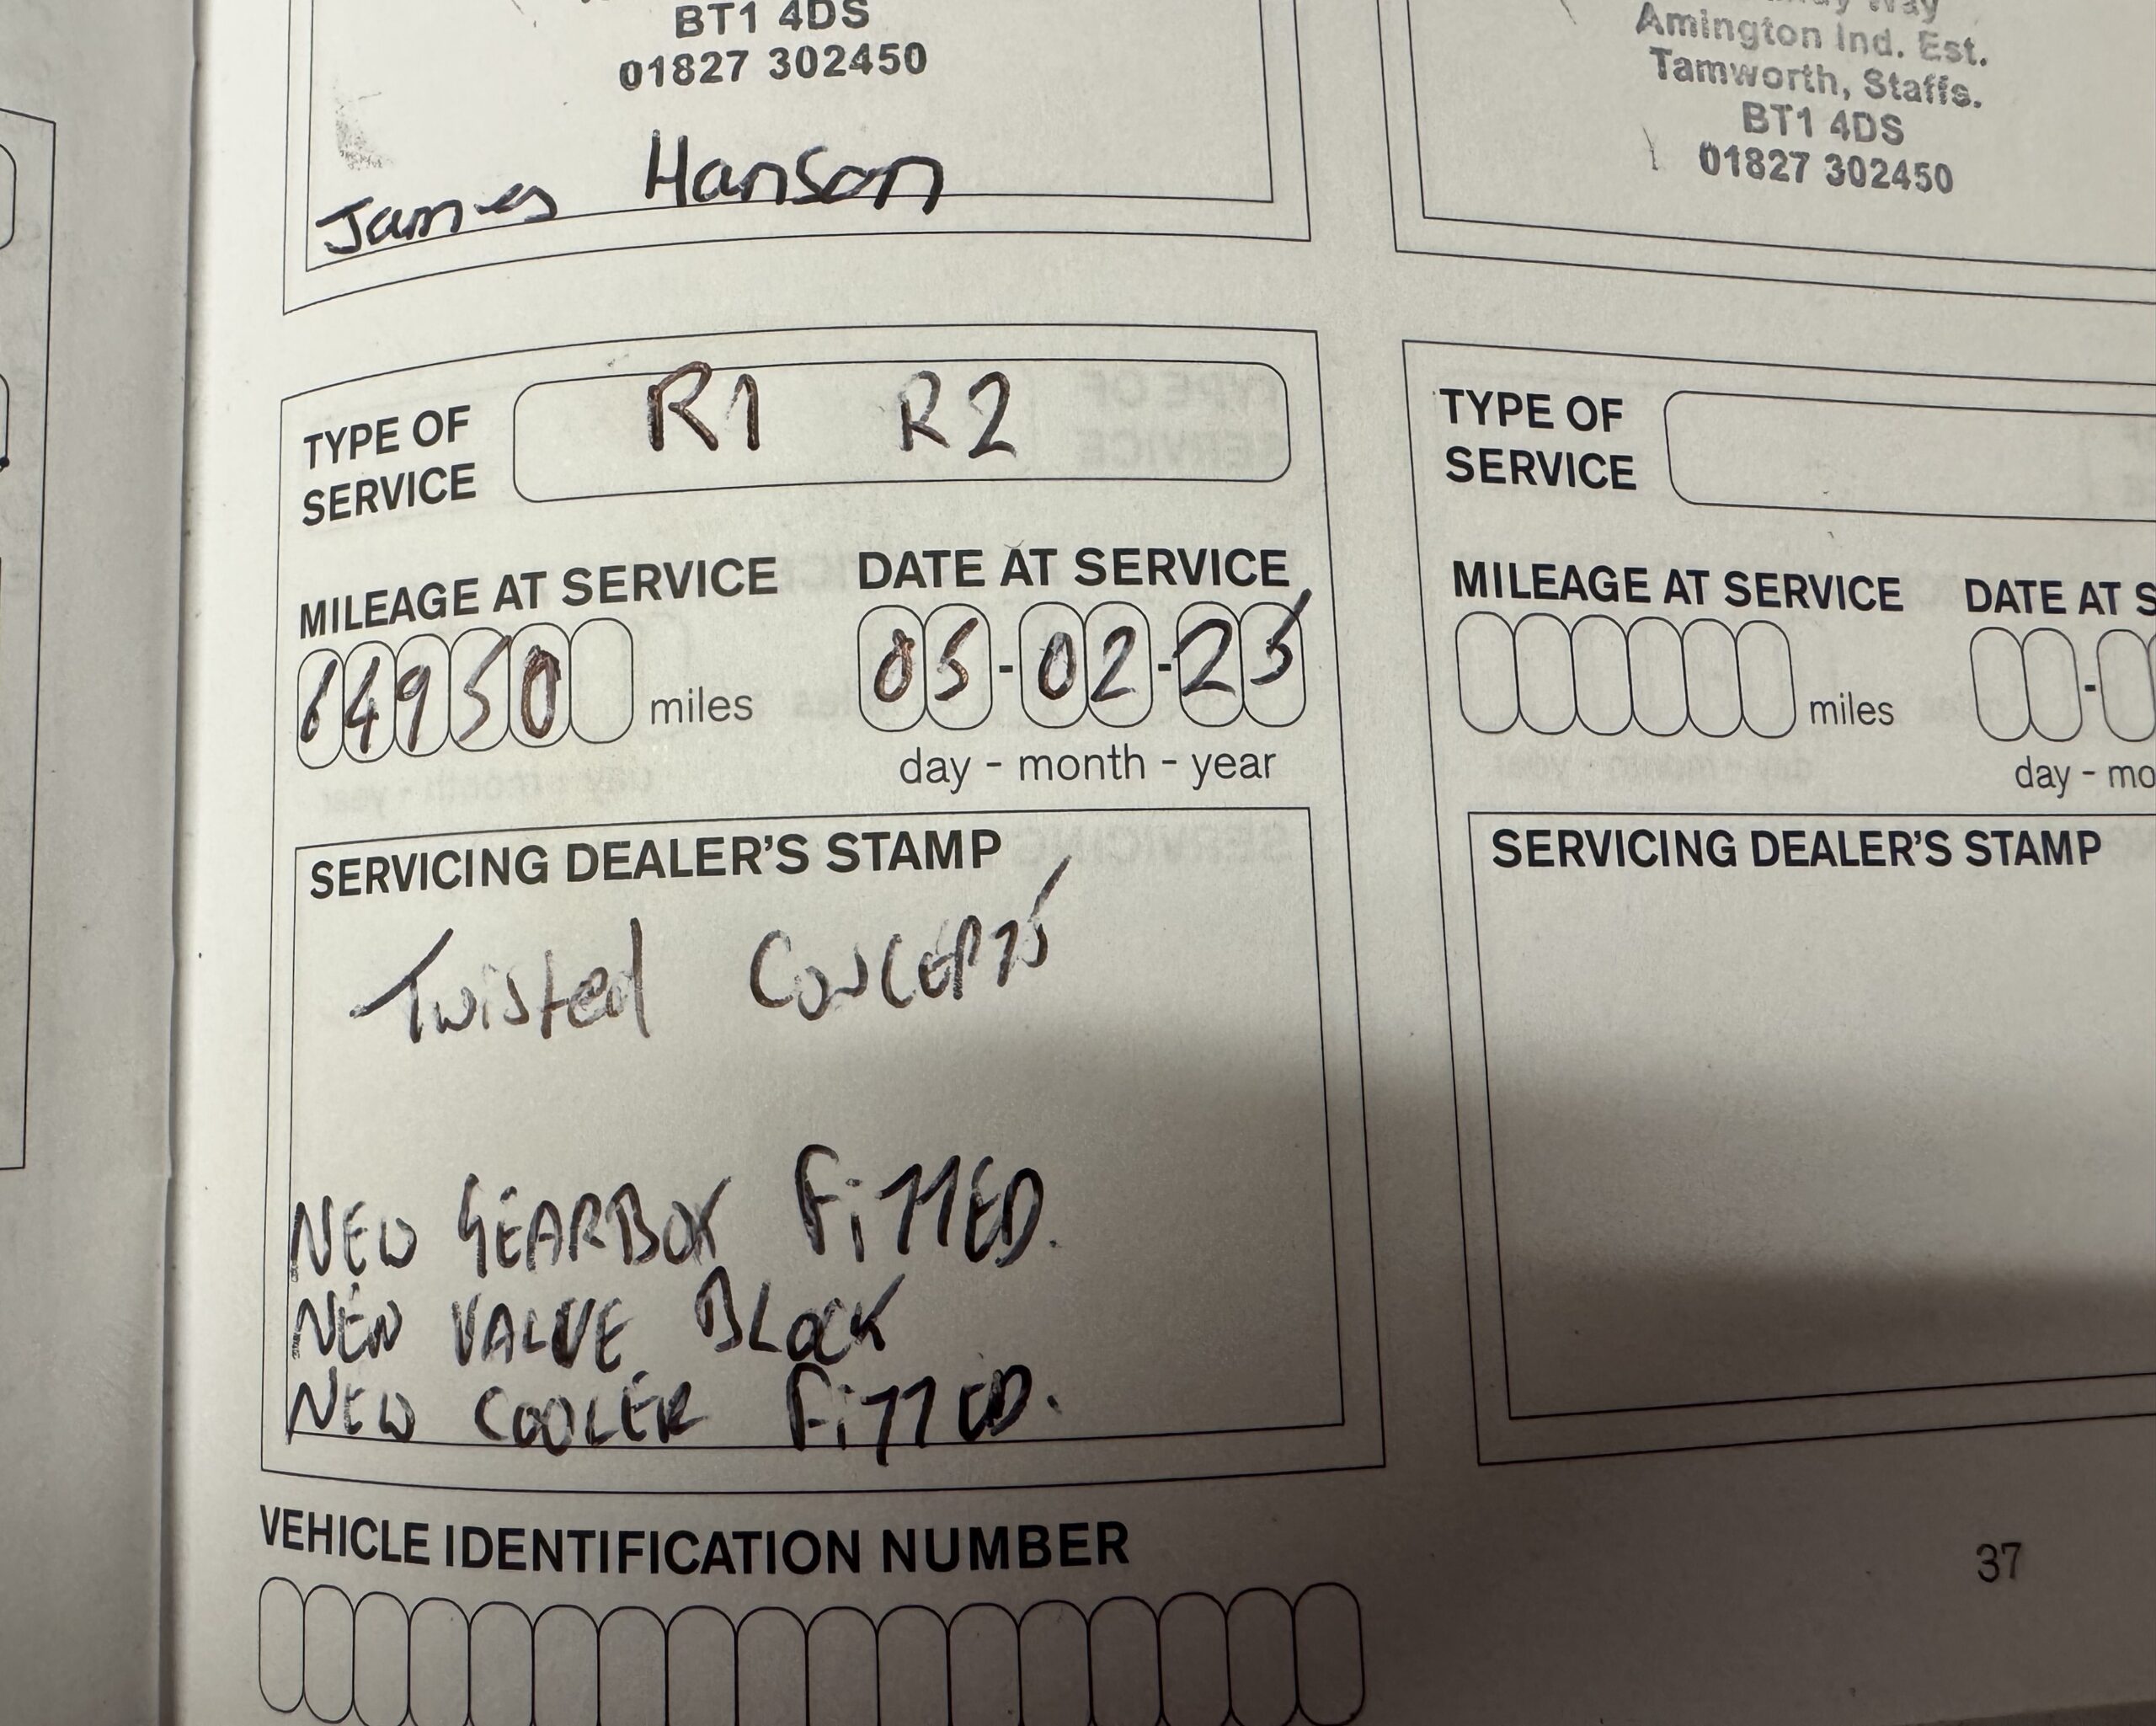 BT1 4DS
01827 302450
James Hanson
Amington Ind. Est.
Tamworth, Staffs.
BT1 4DS
01827 302450
TYPE OF SERVICE R1 R2
MILEAGE AT SERVICE
64950 miles
DATE AT SERVICE
05-02-23
day - month - year
SERVICING DEALER'S STAMP
Twisted CONCEPTS
NEW GEARBOX FiTTED.
NEW VALVE BLOCK
NEW COOLER FiTTED.
TYPE OF SERVICE
MILEAGE AT SERVICE
miles
DATE AT S
day - mo
SERVICING DEALER'S STAMP
VEHICLE IDENTIFICATION NUMBER
37